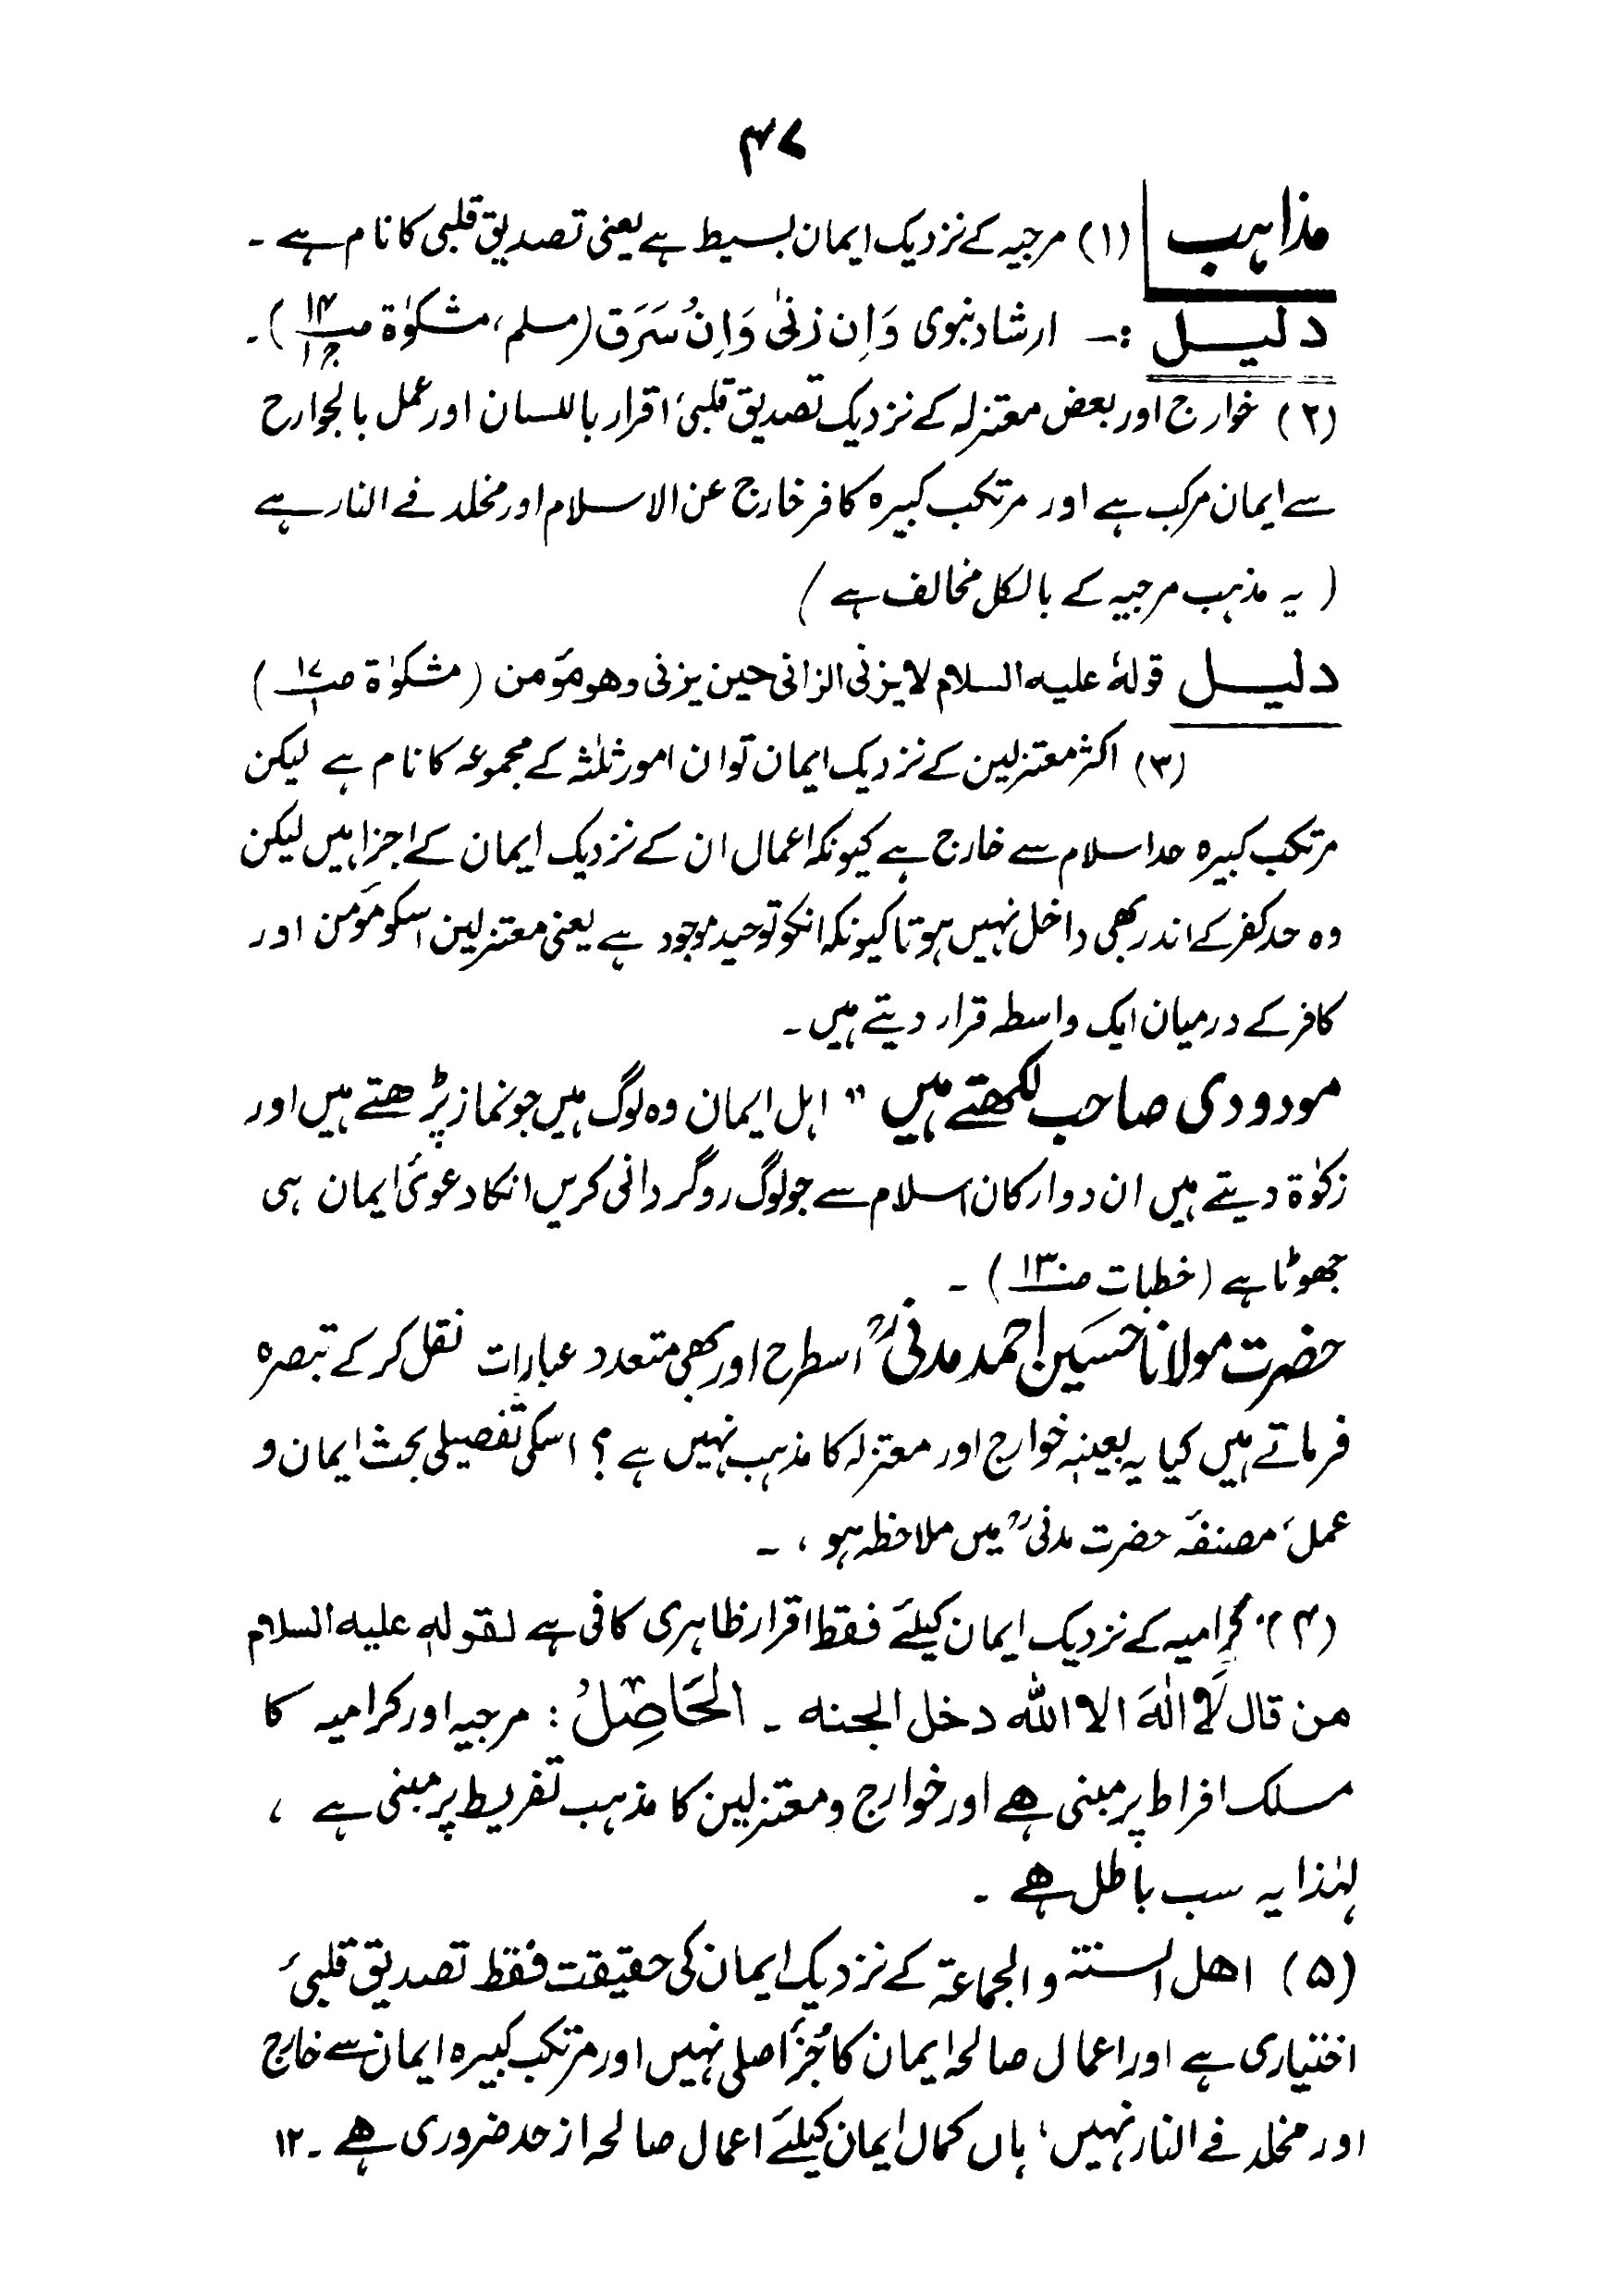 ۴۷
مذاہب (۱) مرجیہ کے نزدیک ایمان بسیط ہے یعنی تصدیق قلبی کا نام ہے ۔
دلیل :۔ ارشاد نبوی وَاِن زنیٰ وَاِنُ سَرَق (مسلم، مشکوٰۃ صـ۱۴ ج۱)۔
(۲) خوارج اور بعض معتزلہ کے نزدیک تصدیق قلبی ، اقرار باللسان اور عمل بالجوارح
سے ایمان مرکب ہے اور مرتکب کبیرہ کافر خارج عن الاسلام اور مخلد فے النار ہے
( یہ مذہب مرجیہ کے بالکل مخالف ہے )
دلیل قولہٗ علیہ السلام لایزنی الزانی حین یزنی وھو مؤمن (مشکوٰۃ صـ۱۷ ۱)
(۳) اکثر معتزلین کے نزدیک ایمان تو ان امور ثلٰثہ کے مجموعہ کا نام ہے لیکن
مرتکب کبیرہ حد اسلام سے خارج ہے کیونکہ اعمال ان کے نزدیک ایمان کے اجزا ہیں لیکن
وہ حد کفر کے اندر بھی داخل نہیں ہوتا کیونکہ انکو توحید موجود ہے یعنی معتزلین اسکو مؤمن اور
کافر کے درمیان ایک واسطہ قرار دیتے ہیں ۔
مودودی صاحب لکھتے ہیں " اہل ایمان وہ لوگ ہیں جو نماز پڑھتے ہیں اور
زکوٰۃ دیتے ہیں ان دو ارکان اسلام سے جو لوگ روگردانی کریں انکا دعویٰ ایمان ہی
جھوٹا ہے (خطبات صـ۱۳۰) ۔
حضرت مولانا حسین احمد مدنیؒ اسطرح اور بھی متعدد عبارات نقل کر کے تبصرہ
فرماتے ہیں کیا یہ بعینہٖ خوارج اور معتزلہ کا مذہب نہیں ہے ؟ اسکی تفصیلی بحث ایمان و
عمل ، مصنفہ حضرت مدنیؒ میں ملاحظہ ہو ، ۔
(۴) کرامیہ کے نزدیک ایمان کیلئے فقط اقرار ظاہری کافی ہے لقولہٖ علیہ السلام
من قال لَا اِلٰہَ الا اللہ دخل الجنہ ۔ الحَاصِلُ : مرجیہ اور کرامیہ کا
مسلک افراط پر مبنی ھے اور خوارج و معتزلین کا مذہب تفریط پر مبنی ہے ،
لہٰذا یہ سب باطل ھے ۔
(۵) اھل السنتہ والجماعۃ کے نزدیک ایمان کی حقیقت فقط تصدیق قلبی ،
اختیاری ہے اور اعمال صالحہ ایمان کا جُزْ اصلی نہیں اور مرتکب کبیرہ ایمان سے خارج
اور مخلد فے النار نہیں ، ہاں کمال ایمان کیلئے اعمال صالحہ از حد ضروری ھے ۔ ۱۲